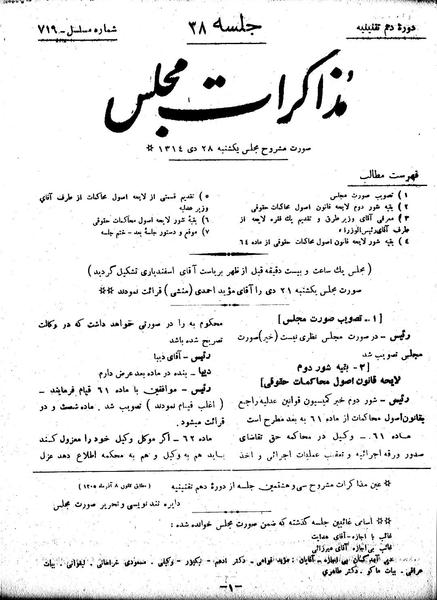 دورهٔ دهم تقنینیه
جلسه ۳۸
شماره مسلسل - ۷۱۹
مذاکرات مجلس
صورت مشروح مجلس یکشنبه ۲۸ دی ۱۳۱۴ ※
فهرست مطالب
۱ ) تصویب صورت مجلس
۲ ) بقیه شور دوم لایحه قانون اصول محاکمات حقوقی
۳ ) معرفی آقای وزیر طرق و تقدیم یك فقره لایحه از
طرف آقای رئیس‌الوزراء
۴ ) بقیه شور لایحه قانون اصول محاکمات حقوقی از ماده ۶۴
۵ ) تقدیم قسمتی از لایحه اصول محاکمات از طرف آقای
وزیر عدلیه
۶ ) بقیهٔ شور لایحه اصول محاکمات حقوقی
۷ ) موقع و دستور جلسهٔ بعد - ختم جلسه
( مجلس یك ساعت و بیست دقیقه قبل از ظهر بریاست آقای اسفندیاری تشکیل گردید )
صورت مجلس یکشنبه ۲۱ دی را آقای مؤید احمدی (منشی) قرائت نمودند ※
[ ۱ - تصویب صورت مجلس ]
رئیس - در صورت مجلس نظری نیست (خیر) صورت
مجلس تصویب شد
[ ۲ - بقیه شور دوم
لایحه قانون اصول محاکمات حقوقی ]
رئیس - شور دوم خبر کمیسیون قوانین عدلیه راجع
بقانون اصول محاکمات از ماده ۶۱ به بعد مطرح است
ماده ۶۱ - وکیل در محاکمه حق تقاضای
صدور ورقه اجرائیه و تعقیب عملیات اجرائی و اخذ
محکوم به را در صورتی خواهد داشت که در وکالت
تصریح شده باشد
رئیس - آقای دیبا
دیبا - بنده در ماده بعد عرض دارم
رئیس - موافقین با ماده ۶۱ قیام فرمایند -
( اغلب قیام نمودند ) تصویب شد . ماده شصت و دو
قرائت میشود .
ماده ۶۲ - اگر موکل وکیل خود را معزول کند
باید هم به وکیل و هم به محکمه اطلاع دهد عزل
※ عین مذاکرات مشروح سی و هشتمین جلسه از دورهٔ دهم تقنینیه ( مطابق قانون ۸ آذرماه ۱۳۰۵ )
دایره تند نویسی و تحریر صورت مجلس
※ اسامی غائبین جلسه گذشته که ضمن صورت مجلس خوانده شده :
غائب با اجازه - آقای هدایت
غائب بی‌اجازه - آقای میرزائی
دیر آمدگان بی اجازه - آقایان : مؤید قوامی - دکتر ادهم - نیکپور - وکیلی - مسعودی خراسانی - لیقوانی - بیات
عراقی - بیات ماکو - دکتر طاهری
- ۱ -